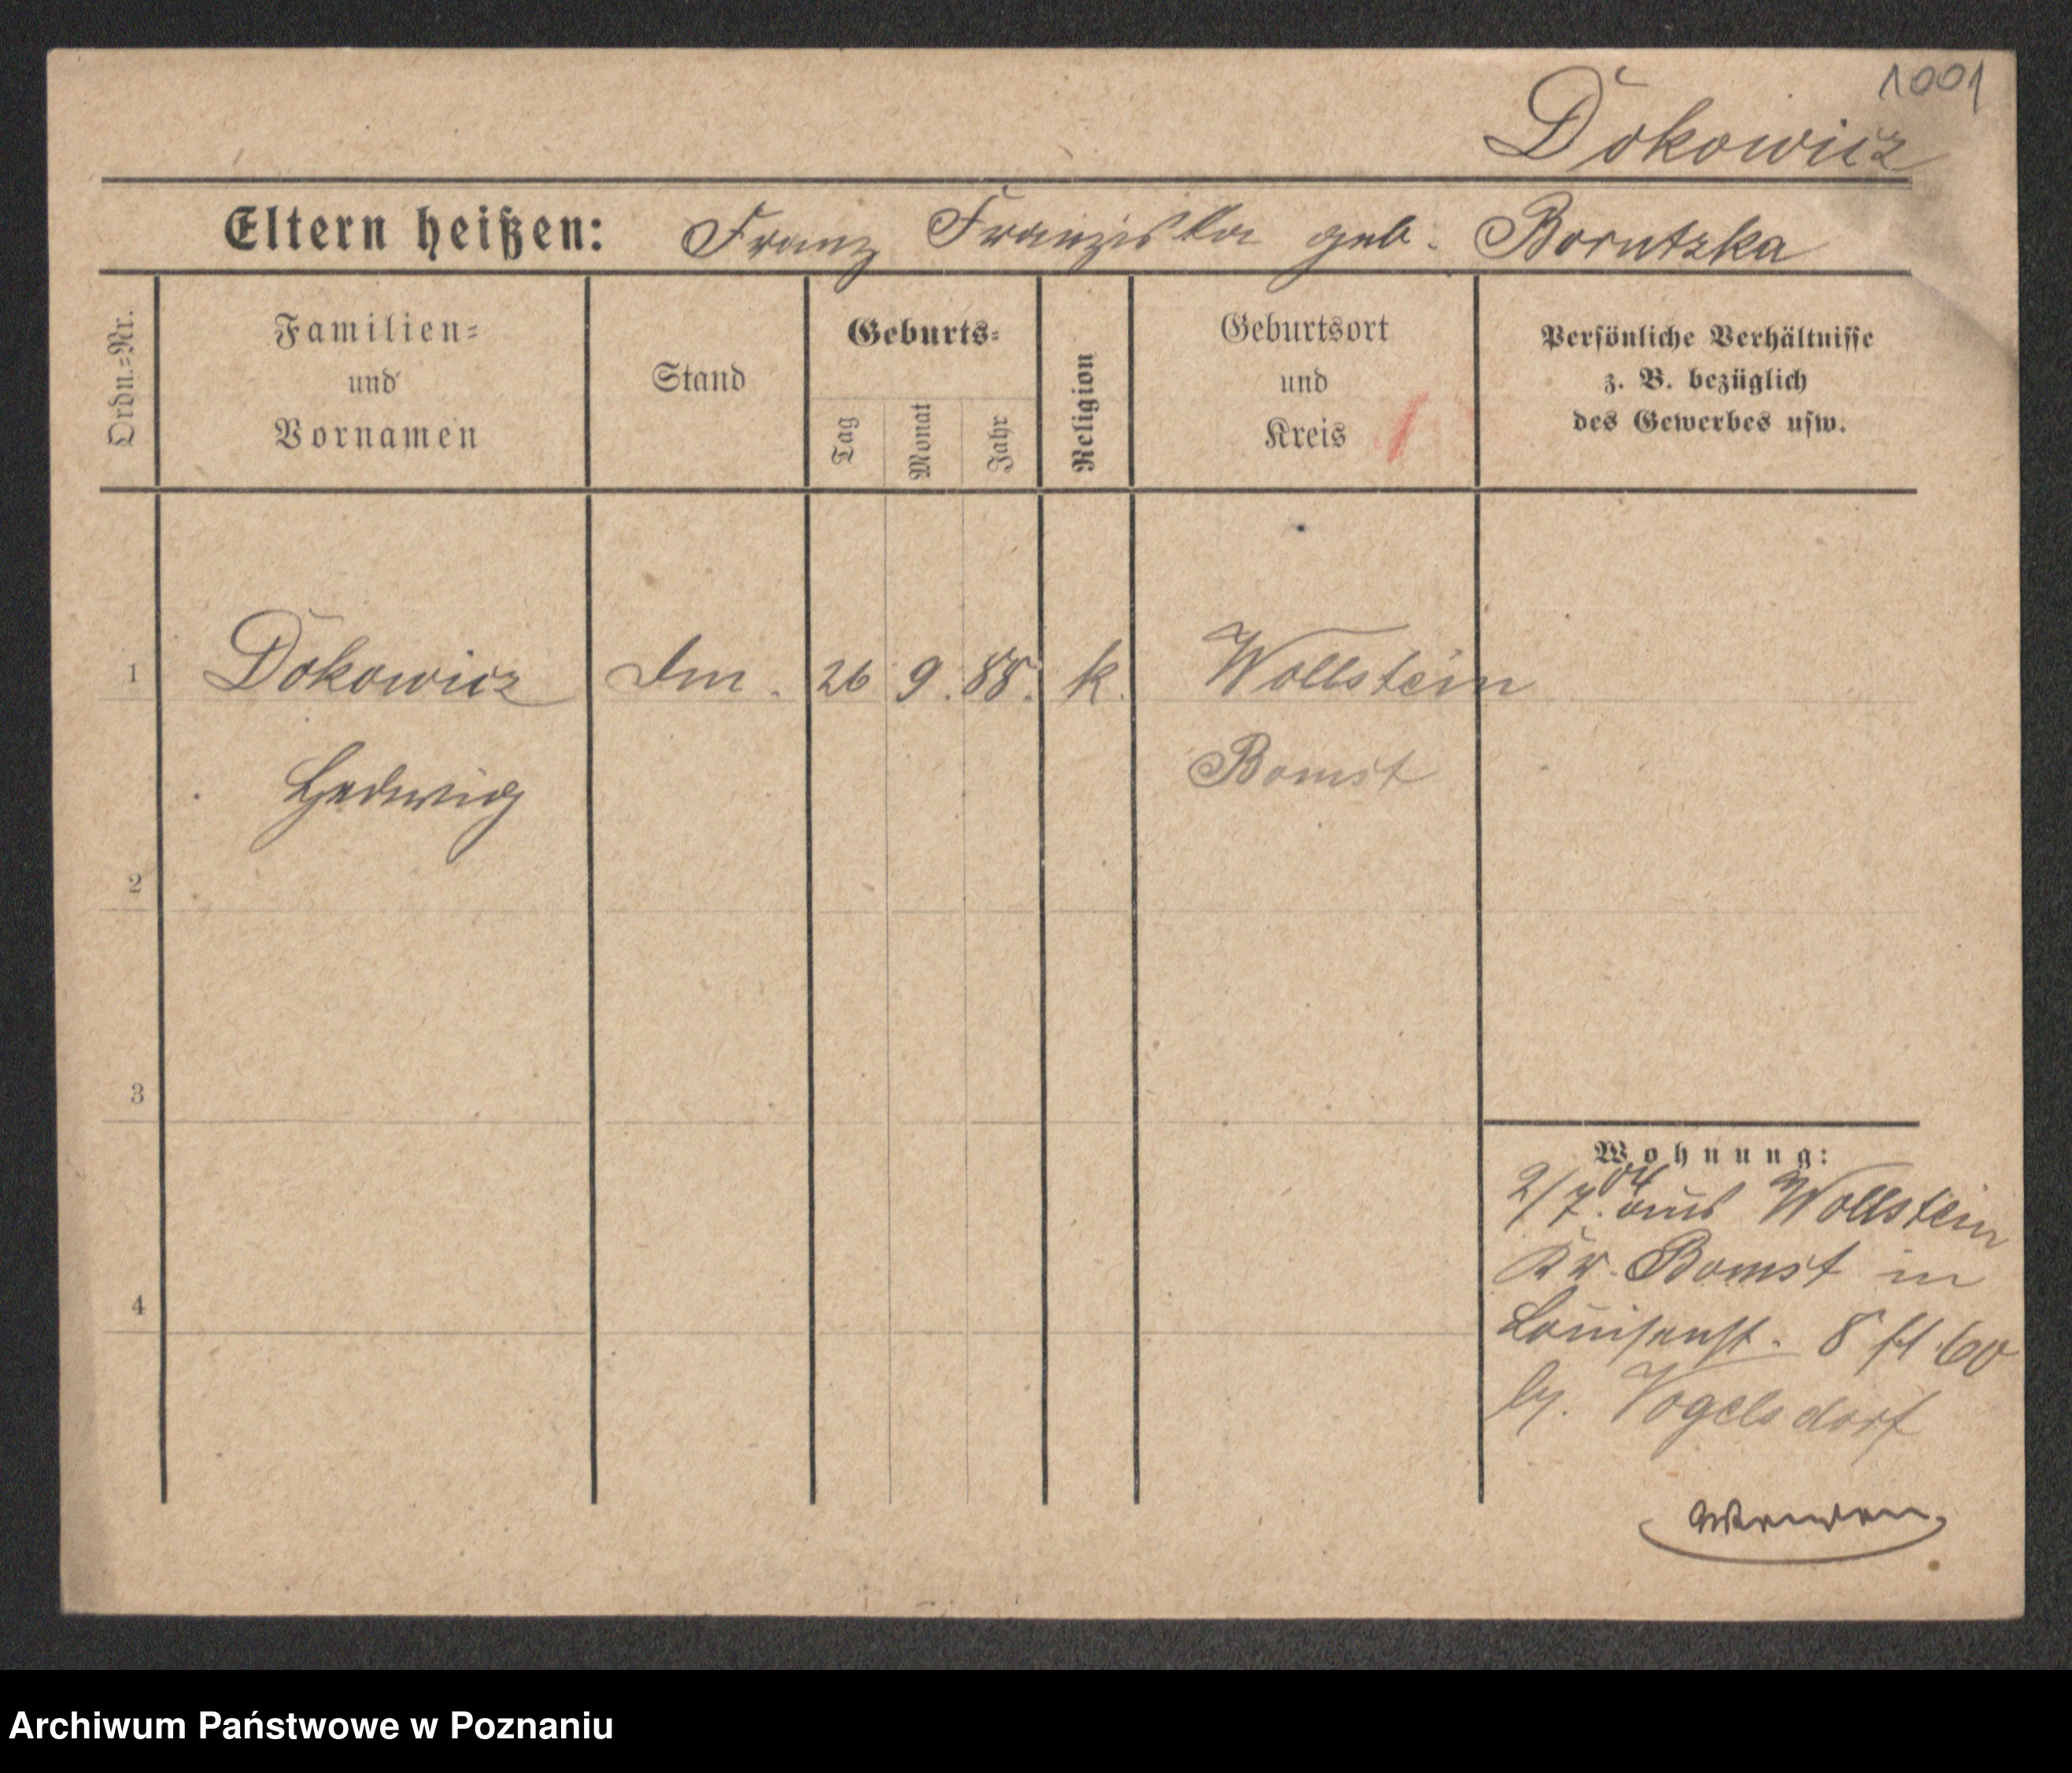 1001
Dokowicz
Eltern heißen: Franz Franziska geb. Borutzka
Ordn.=Nr.
Familien=
und
Vornamen
Stand
Geburts=
Tag
Monat
Jahr
Religion
Geburtsort
und
Kreis
Persönliche Verhältnisse
z. B. bezüglich
des Gewerbes usw.
1 Dokowicz 26 9. 88. k. Wollstein
Hedwig Bomst
2
3
4
Wohnung:
2/7. 04 aus Wollstein
Kr. Bomst in
Louisenst. 8
by. Vogelsdorf
Wenden.
Archiwum Państwowe w Poznaniu